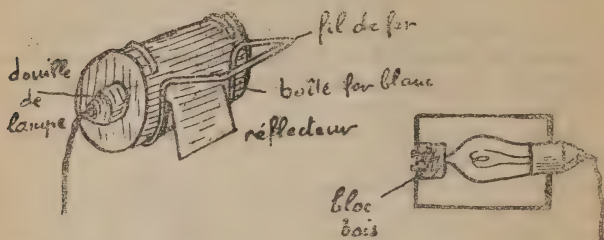 fil de fer
douille
de
lampe
boîte fer blanc
réflecteur
bloc
bois